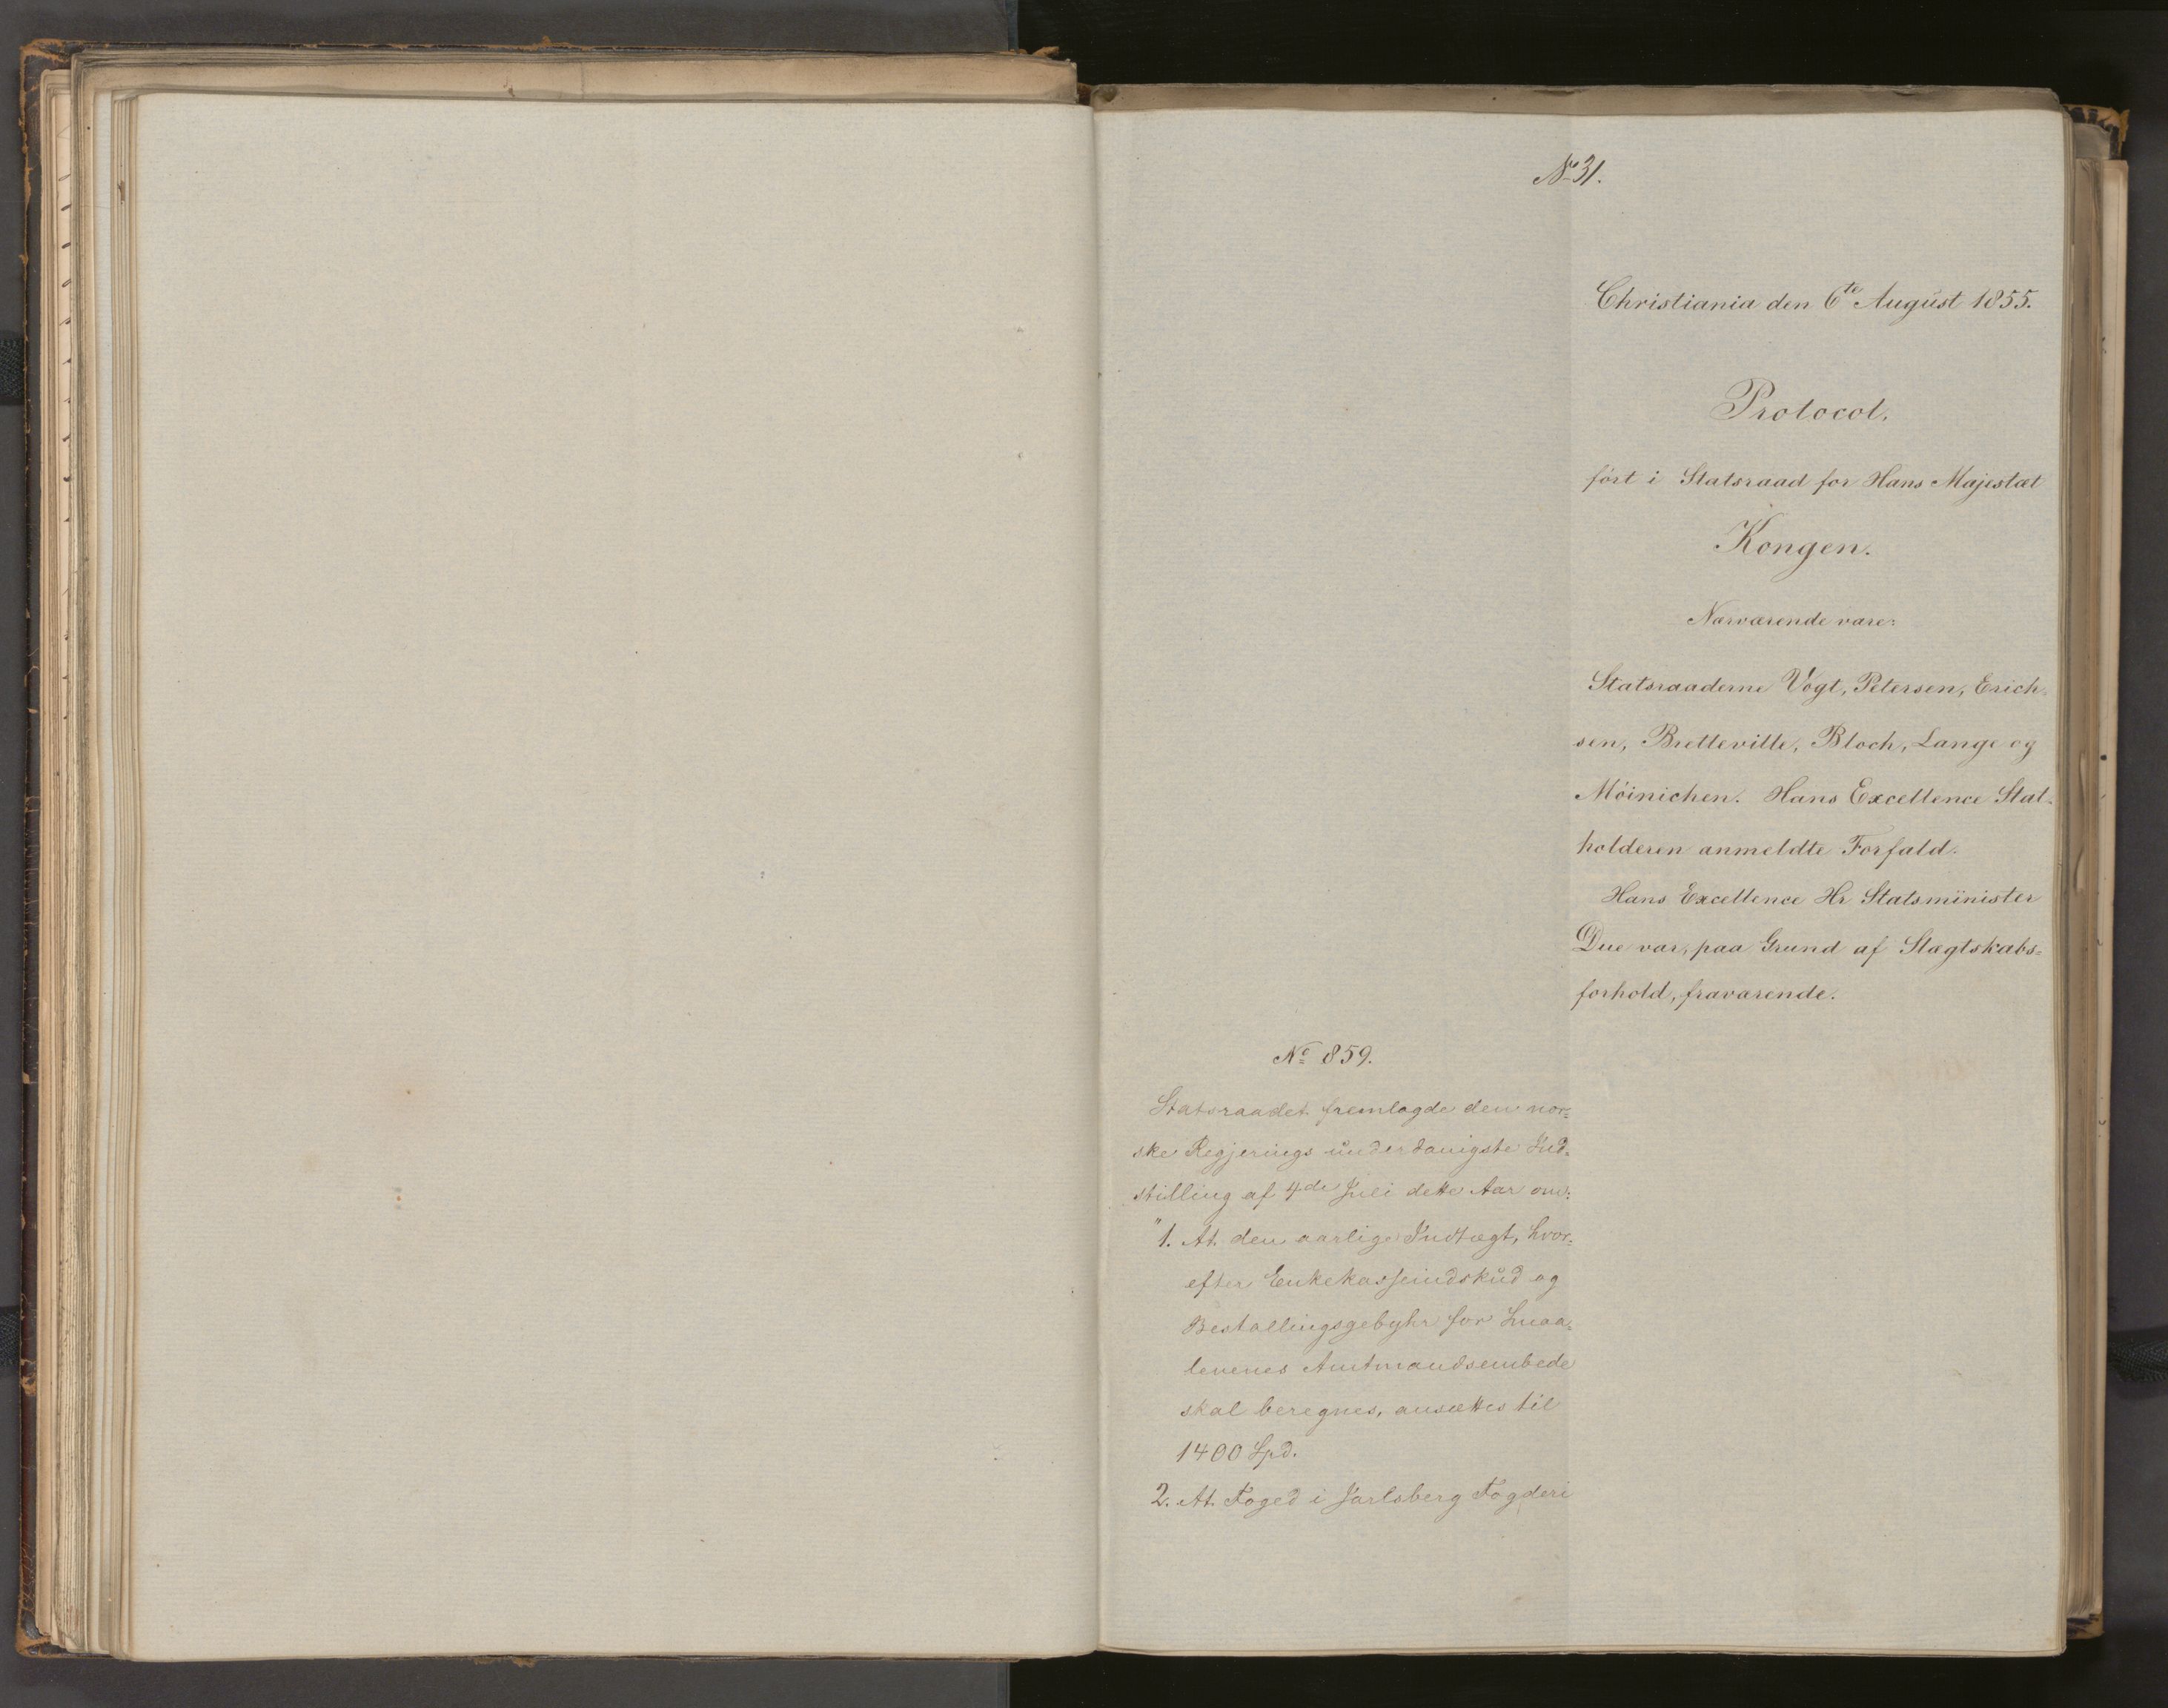 No 31.
Christiania den 6te August 1855.
Protocol,
ført i Statsraad for Hans Majestæt
Kongen.
Nærværende vare:
Statsraaderne Vogt, Petersen, Erich-
sen, Bretteville, Bloch, Lange og
Möinichen. Hans Excellence Stat-
holderen anmeldte Forfald.
Hans Excellence Hr Statsminister
Due var, paa Grund af Slægtskabs=
forhold, fraværende.
No 859.
Statsraadet fremlagde den nor=
ske Regjerings underdanigste Ind=
stilling af 4de Juli dette Aar om:
"1. At den aarlige Indtægt, hvor=
efter Enkekasseindskud og
Bestallingsgebyhr for Smaa=
lenenes Amtmandsembede
skal beregnes, ansættes til
1400 Spd.
2. At Foged i Jarlsberg Fogderi